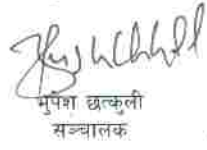 भुपेश छत्कुली
सञ्चालक